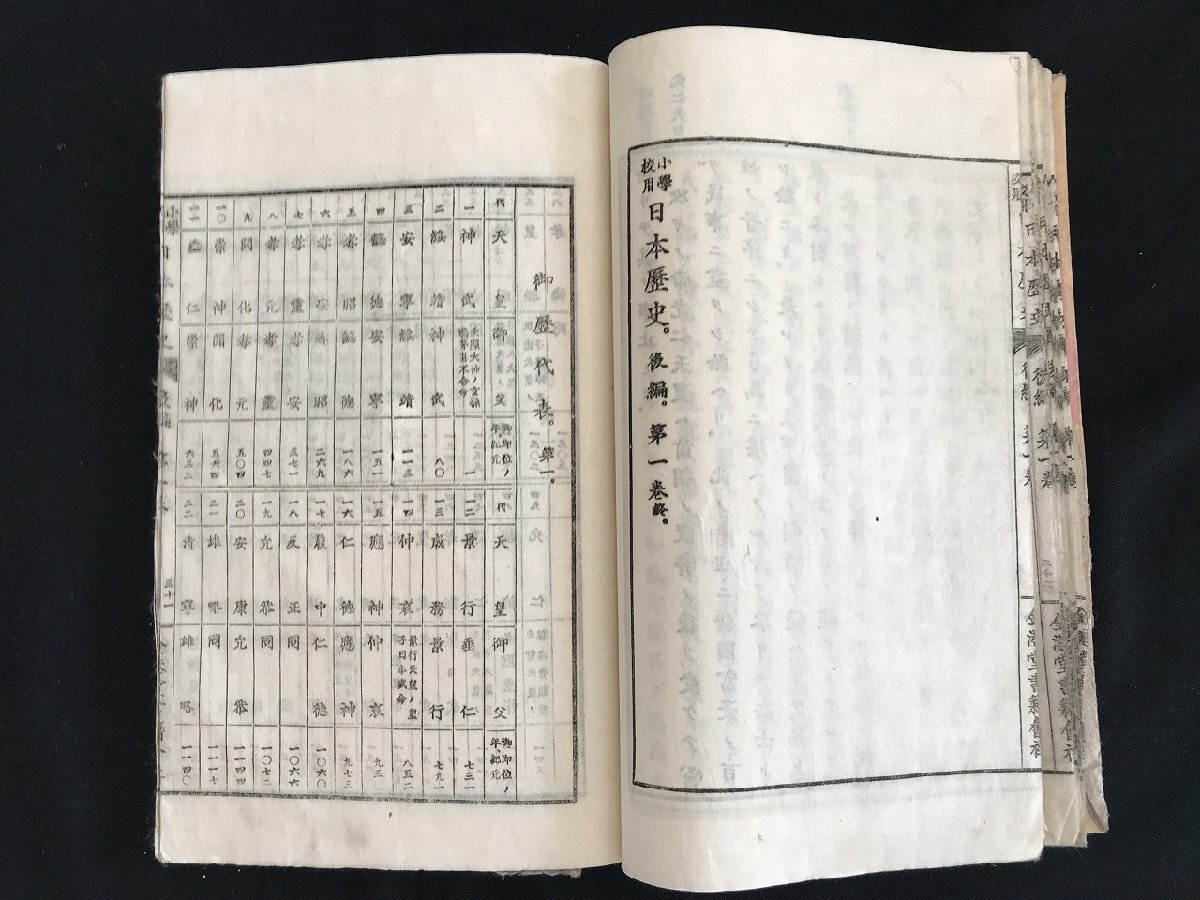 小學校用日本歷史。後編。第一卷終。
御歷代表。第一。
代 天皇 御父 御即位ノ年、紀元
一 神武 一
二 綏靖 神武 八〇
三 安寧 綏靖 一一三
四 懿德 安寧 一五一
五 孝昭 懿德 一八六
六 孝安 孝昭 二六九
七 孝靈 孝安 三七一
八 孝元 孝靈 四四七
九 開化 孝元 五〇四
一〇 崇神 開化 五六四
一一 垂仁 崇神 六三二
代 天皇 御父 御即位ノ年、紀元
一二 景行 垂仁 七三一
一三 成務 景行 七九一
一四 仲哀 景行天皇ノ皇子日本武命 八五二
一五 應神 仲哀 九三一
一六 仁德 應神 九七三
一七 履中 仁德 一〇六〇
一八 反正 同 一〇六六
一九 允恭 同 一〇七二
二〇 安康 允恭 一一一四
二一 雄略 同 一一一七
二二 清寧 雄略 一一四〇
三十一
金港堂書籍會社